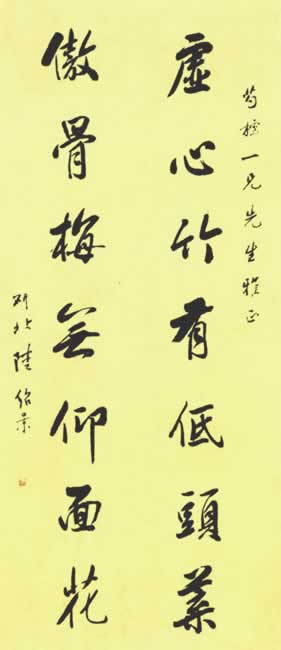 一兄先生雅正
虛心竹有低頭葉
傲骨梅無仰面花
北陸紹景